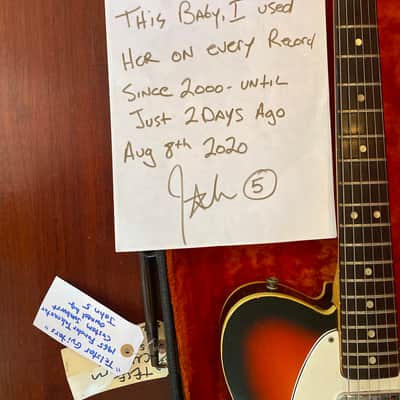 This Baby, I used
Her on every Record
Since 2000 - until
Just 2 Days Ago
Aug 8th 2020
John 5
"Telstar Guitars"
1965 Fender Telecaster
Custom Sunburst
Owned by
John 5